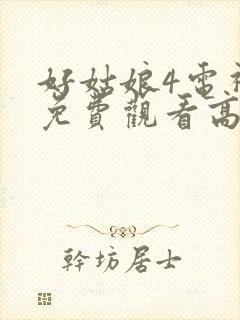 好姑娘4電視
免費觀看高
幹坊居士